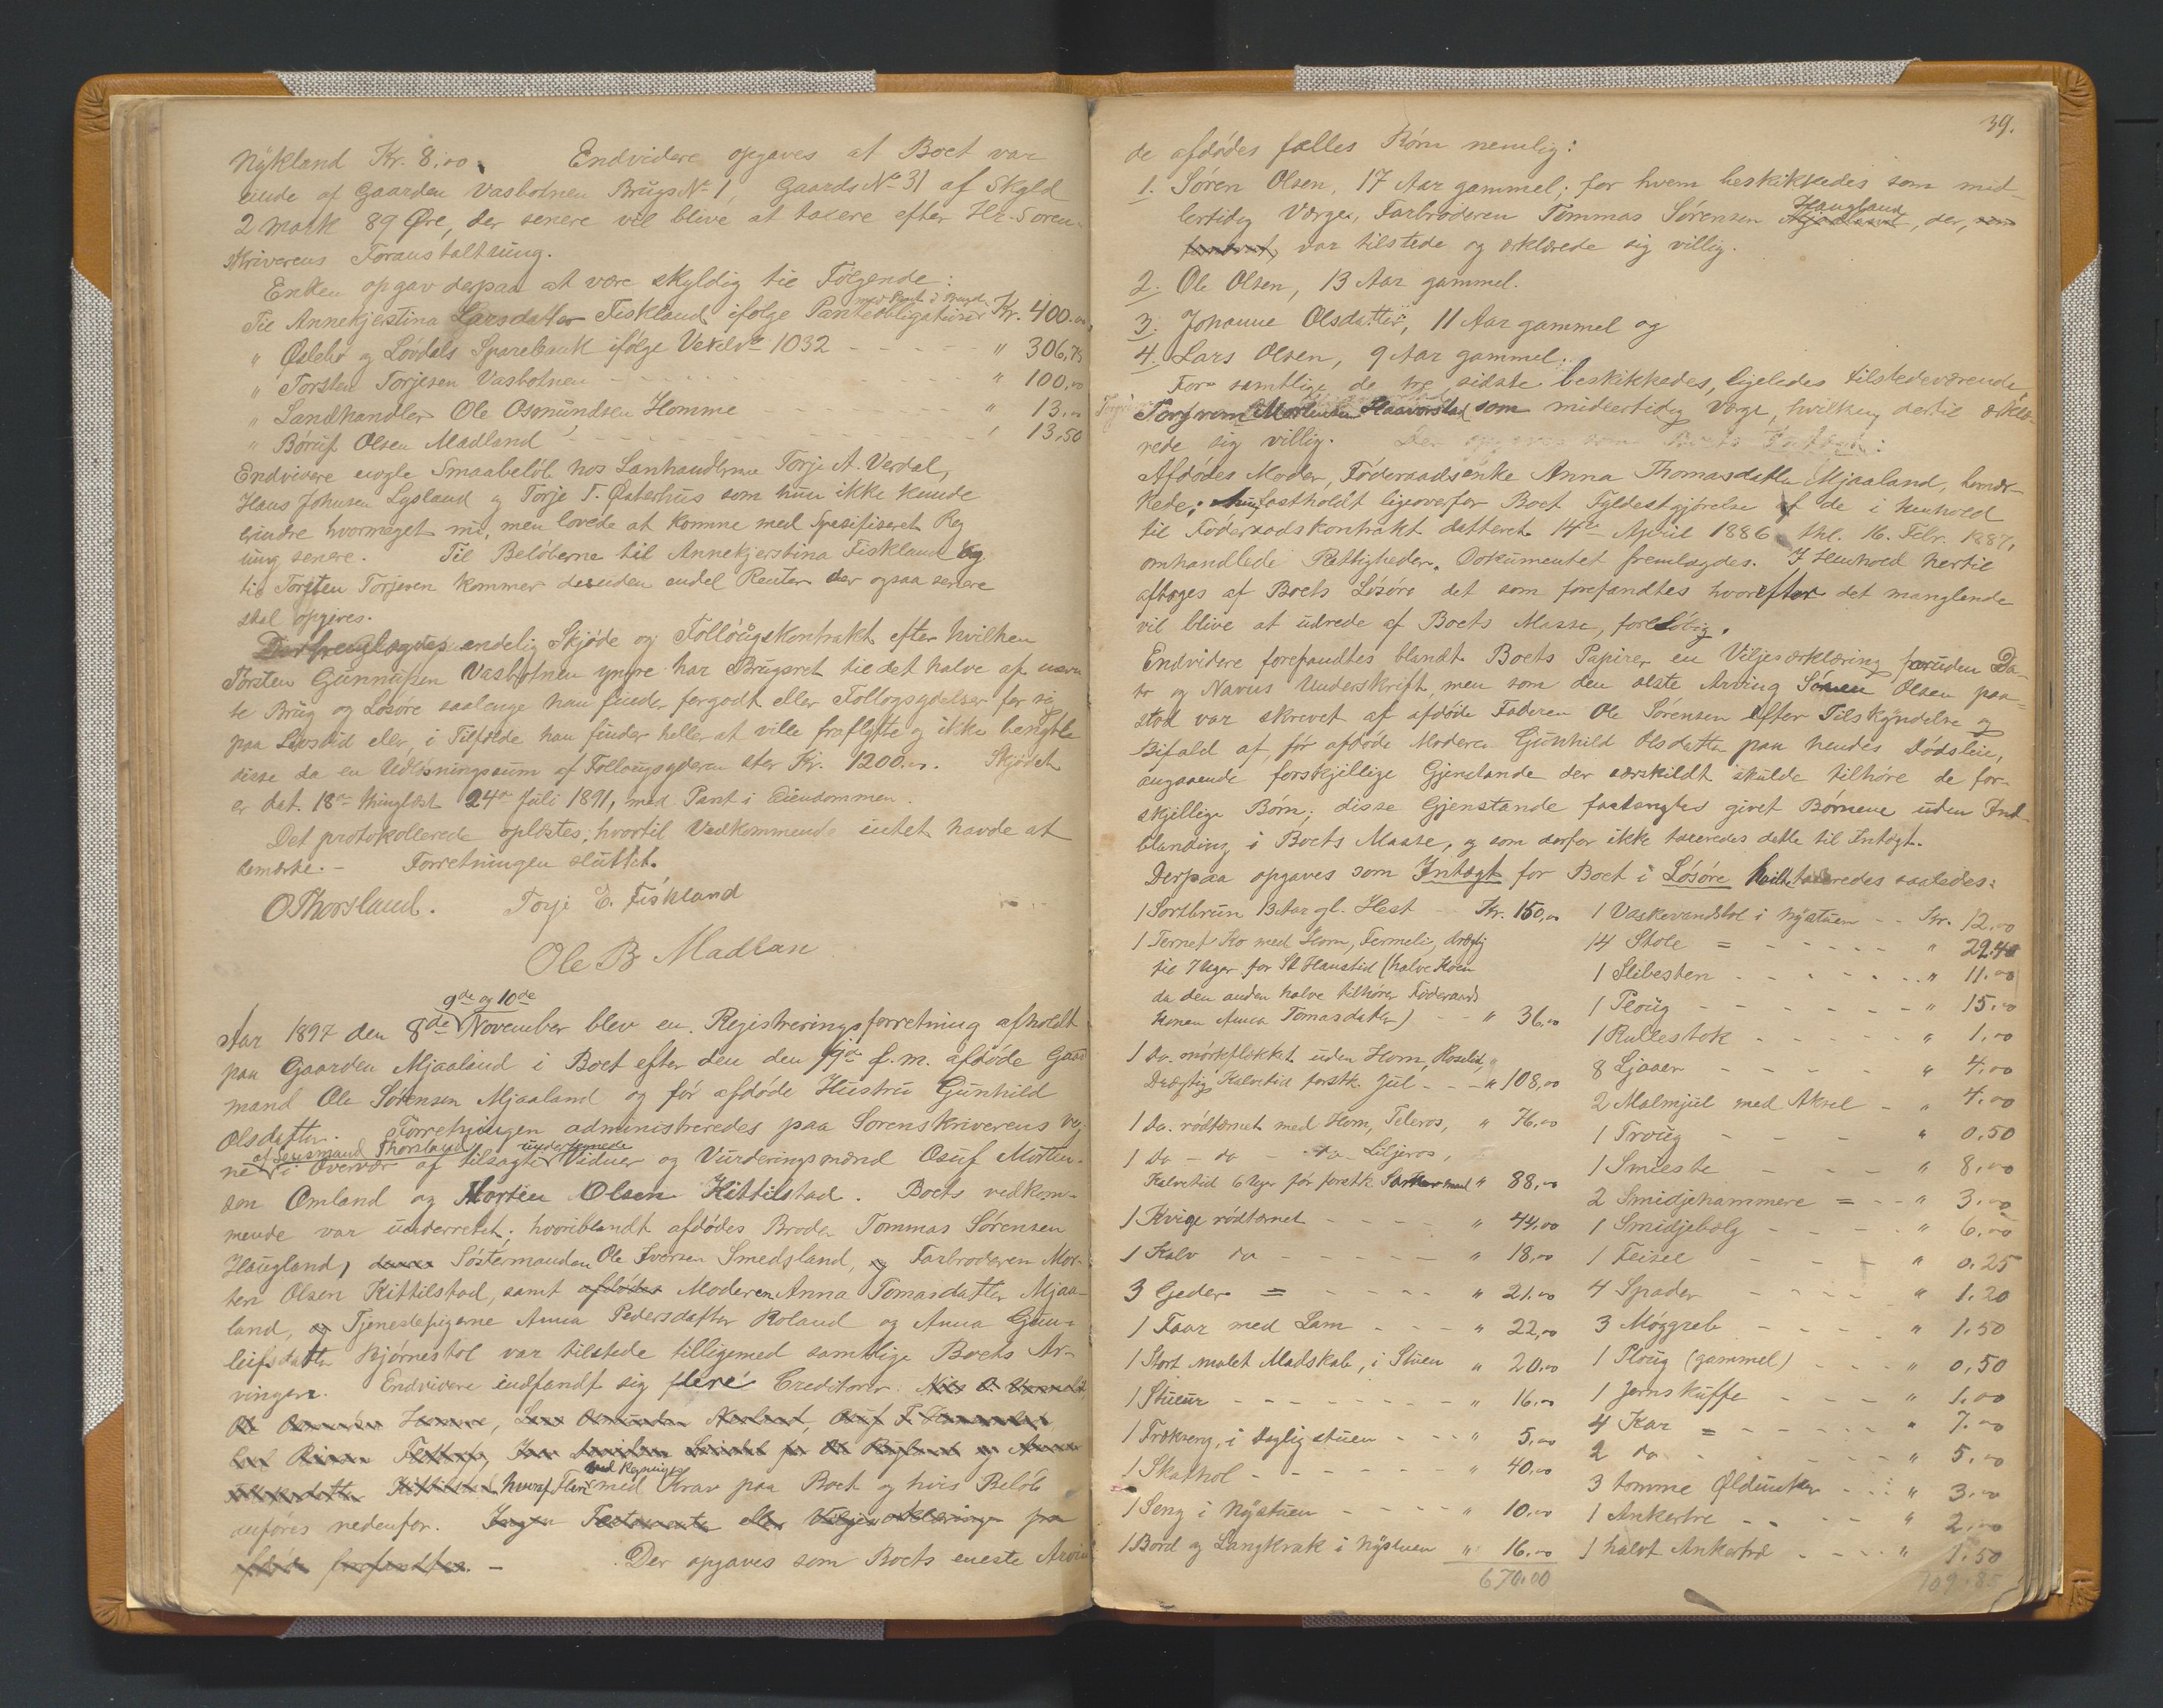 Nykland Kr. 8.00. Endvidere opgaves at Boet var
eiende af Gaarden Vasbotnen Brugs No 1, Gaards No 31 af Skyld
2 Mark 89 Øre, der senere vil blive at taxere efter Hr. Soren-
skriverens Foranstaltning.
Enken opgav derpaa at være skyldig til Følgende:
Til Annekjerstina Larsdatter Fiskland ifølge Panteobligationer med Pant i Brugd. Kr. 400.00
" Øslebø og Løvdals Sparebank ifølge Vexel No 1032 - - - - - " 306,75
" Torsten Torjesen Vasbotnen - - - - - " 100,00
" Landhandler Ole Osmundsen Homme - - - - " 13.00
" Børuf Olsen Madland - - - - - " 13,50
Endvidere nogle Smaabeløb hos Lanhandlerne Torje A. Verdal,
Hans Johnsen Lysland og Torje T. Østerhus som hun ikke kunde
erindre hvormeget nu, men lovede at komme med Spesifiseret Reg
ning senere. Til Beløberne til Annekjerstina Fiskland og
til Torsten Torjesen kommer desuden endel Renter der ogsaa senere
skal opgives.
Der fremlagdes endelig Skjøde og Follougskontrakt efter hvilken
Torsten Gunnufsen Vasbotnen yngre har Brugsret til det halve af nævn
te Brug og Løsøre saalenge han finder forgodt eller Follogsydelser for sig
paa Livstid eller i Tilfælde han finder heller at ville fraflytte og ikke benytte
disse da en Udløsningssum af Follougsyderen stor Kr. 1200.00. Skjødet
er dat. 18de thinglæst 24de Juli 1891, med Pant i Eiendommen.
Det protokollerede oplæstes; hvortil Vedkommende intet havde at
bemærke. - Forretningen sluttet.
O Thorsland. Torje E. Fiskland
Ole B Madlan
9de og 10de
Aar 1897 den 8de November blev en Registreringsforretning afholdt
paa Gaarden Mjaaland i Boet efter den den 1ste f.m. afdøde Gaard
mand Ole Sørensen Mjaaland og før afdøde Hustru Gunhild
Olsdatter. Forretningen administreredes paa Sorenskriverens Veg
af Lensmand Thorsland undertegnede
ne i Overvær af tilsagte Vidner og Vurderingsmænd Osuf Morten-
sen Omland og Morten Olsen Kittilstad. Boets vedkom-
mende var underrettet; hvoriblandt afdødes Broder Tommas Sørensen
Haugland, Søstermanden Ole Iversen Smedsland, og Farbroderen Mor-
ten Olsen Kittilstad, samt afdødes Moderen Anna Tomasdatter Mjaa-
land, og Tjenestepigerne Anna Pedersdatter Roland og Anna Gun-
leifsdatter Bjørnestøl var tilstede tilligemed samtlige Boets Ar-
vinger. Endvidere indfandt sig flere Creditorer
Homme,
ved Regninger
hvoraf Flere med Krav paa Boet og hvis Beløb
anføres nedenfor. Ingen Testamente eller Viljeserklæringer fra
afdøde forefandtes. - Der opgaves som Boets eneste Arvin
39.
de afdødes fælles Børn nemlig:
1. Søren Olsen, 17 Aar gammel; for hvem beskikkedes som mid-
lertidig Værge, Farbroderen Tommas Sørensen Haugland, der, som
var tilstede og erklærede sig villig.
2. Ole Olsen, 13 Aar gammel.
3. Johanne Olsdatter, 11 Aar gammel og
4. Lars Olsen, 9 Aar gammel.
For samtlige de tre sidste beskikkedes, ligeledes tilstedeværende
Torgrim Mortensen Haaverstad som midlertidig Værge, hvilken dertil erklæ-
rede sig villig.
Afdødes Moder, Føderaadsenke Anna Thomasdatter Mjaaland, bemær-
kede; hun fastholdt ligeoverfor Boet Fyldestgjørelse af de i henhold
til Føderaadskontrakt datteret 14de April 1886 thl. 16. Febr. 1887,
omhandlede Rettigheder. Dokumentet fremlagdes. I Henhold hertil
aftoges af Boets Løsøre det som forefandtes hvorefter det manglende
vil blive at udrede af Boets Masse, foreløbig.
Endvidere forefandtes blandt Boets Papirer en Viljeserklæring foruden Da-
to og Navns Underskrift, men som den ælste Arving Søren Olsen paa-
stod var skrevet af afdøde Faderen Ole Sørensen efter Tilskyndelse og
Bifald af, før afdøde Moderen Gunhild Olsdatter paa hendes Dødsleie,
angaaende forskjellige Gjenstande der særskildt skulde tilhøre de for-
skjellige Børn; disse Gjenstande fastlagdes givet Børnene uden Ind-
blanding i Boets Masse, og som derfor ikke taxeredes dette til Indtægt.
Derpaa opgaves som Indtægt for Boet i Løsøre hvilke taxeredes saaledes:
1 Sortbrun 13 Aar gl. Hest - Kr. 150,00
1 Ternet Ko med Horn, Fermeli, drægtig
til 7 Uger for St Hanstid (halve Koen
da den anden halve tilhører Føderaads
Konen Anna Tomasdatter) - - " 36,00
1 do. mørkflekket uden Horn, Roselid,
Drægtig, Kalvetid forstk. Jul - - - " 108,00
1 do. rødternet med Horn, Teleros, " 76,00
1 do - do - do Liljeros,
Kalvetid 6 Uger før forstk. " 88,00
1 Kvige rødternet - - - - " 44,00
1 Kalv do - - - - " 18,00
3 Geder = - - - - " 21.00
1 Faar med Lam - - - " 22,00
1 Stort malet Madskab, i Stuen " 20.00
1 Stueur - - - - - - " 16.00
1 Trækseng, i dagligstuen - - - " 5,00
1 Skathol - - - - - - " 40,00
1 Seng i Nystuen - - - - " 10.00
1 Bord og Langkrak i Nystuen " 16.00
670.00
1 Vaskevandstol i Nystuen - - Kr. 12,00
14 Stole = - - - - - " 29.40
1 Slibesten - - - - - - " 11.00
1 Ploug - - - - - " 15.00
1 Rullestok - - - - - " 1.00
8 Ljaaer - - - - " 4.00
2 Malmjul med Aksel - " 4.00
1 Troug - - - " 0,50
1 Smieste - - - " 8,00
2 Smidjehammere = - - " 3.00
1 Smidjebælg - - - " 6.00
1 Feisel - - - " 0.25
4 Spader - - - - " 1.20
3 Møggreb - - - - " 1.50
1 Ploug (gammel) - - - " 0,50
1 Jernskuffe - - - " 1.00
4 Kar = - - - - " 7.00
2 do - - - - " 5.00
3 tomme Øldunker - - - " 3.00
1 Ankertre - - - - " 2.00
1 halvt Ankertræ - - - " 1.50
109.85